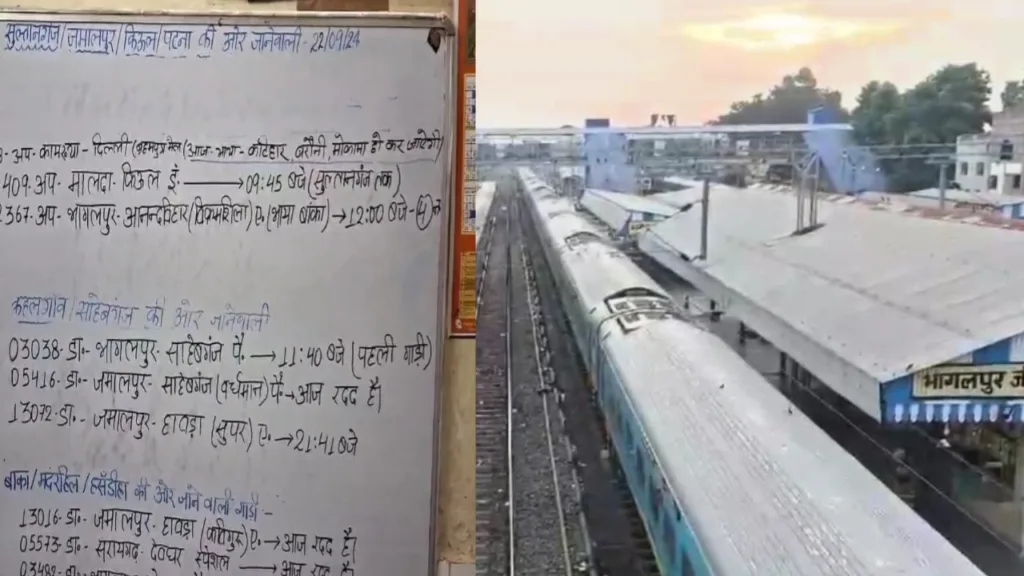 सुल्तानगंज/जमालपुर/किऊल/पटना की ओर जानेवाली - 22/09/24
अप- कामाख्या - दिल्ली (ब्रह्मपुत्र मेल) (आज भाया- कटिहार, बरौनी, मोकामा हो कर जाएगी)
409 अप- मालदा- किऊल ई. → 09:45 बजे (सुल्तानगंज तक)
2367 अप- भागलपुर- आनन्दविहार (विक्रमशिला) ए. (भाया बांका) → 12:00 बजे
कहलगाँव/साहेबगंज की ओर जानेवाली
03038- डा०- भागलपुर- साहेबगंज पै. → 11:40 बजे (पहली गाड़ी)
05416- डा०- जमालपुर- साहेबगंज (वर्धमान) पै → आज रदद है।
13072- डा०- जमालपुर- हावड़ा (सुपर) ए. → 21:41 बजे
बांका/मदारहिल/हंसडीहा की ओर जाने वाली गाड़ी :-
13016- डा०- जमालपुर- हावड़ा (कविगुरु) ए० → आज रदद है।
05573- डा०- सरायगढ़- देवघर स्पेशल → आज रदद है।
भागलपुर जं